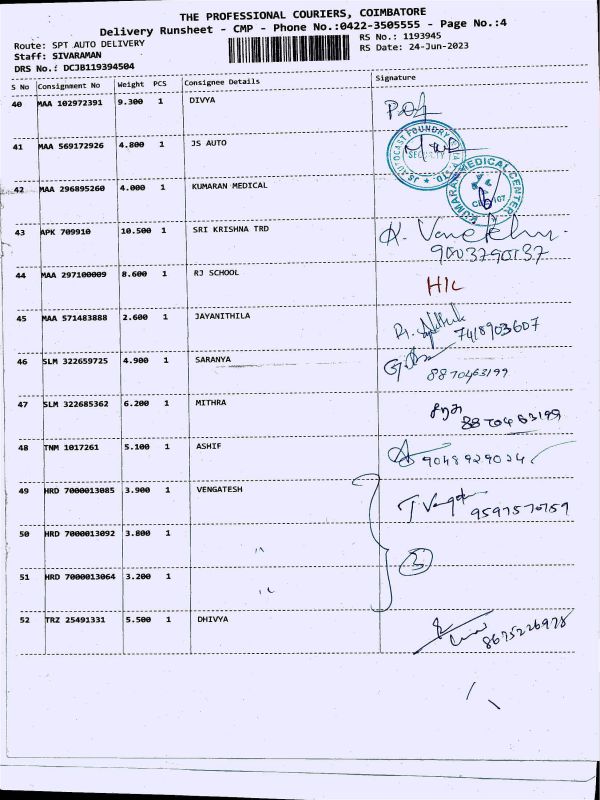 THE PROFESSIONAL COURIERS, COIMBATORE
Delivery Runsheet - CMP - Phone No.:0422-3505555 - Page No.:4
Route: SPT AUTO DELIVERY
RS No.: 1193945
Staff: SIVARAMAN
RS Date: 24-Jun-2023
DRS No.: DCJB119394504
S No Consignment No Weight PCS Consignee Details Signature
40 MAA 102972391 9.300 1 DIVYA
41 MAA 569172926 4.800 1 JS AUTO
JS AUTOCAST FOUNDRY
SECURITY
42 MAA 296895260 4.000 1 KUMARAN MEDICAL
KUMARAN MEDICAL CENTER
43 APK 709910 10.500 1 SRI KRISHNA TRD
9003790137
44 MAA 297100009 8.600 1 RJ SCHOOL H1L
45 MAA 571483888 2.600 1 JAYANITHILA
7418903607
46 SLM 322659725 4.900 1 SARANYA
8870463199
47 SLM 322685362 6.200 1 MITHRA
8870463199
48 TNM 1017261 5.100 1 ASHIF 9048929024
49 HRD 7000013085 3.900 1 VENGATESH
9597570759
50 HRD 7000013092 3.800 1 "
3
51 HRD 7000013064 3.200 1 "
52 TRZ 25491331 5.500 1 DHIVYA
8675226978